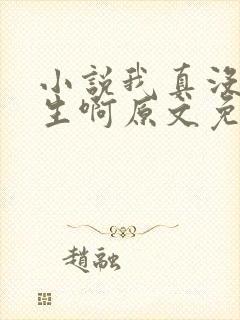 小説我真没
生啊原文免
趙融